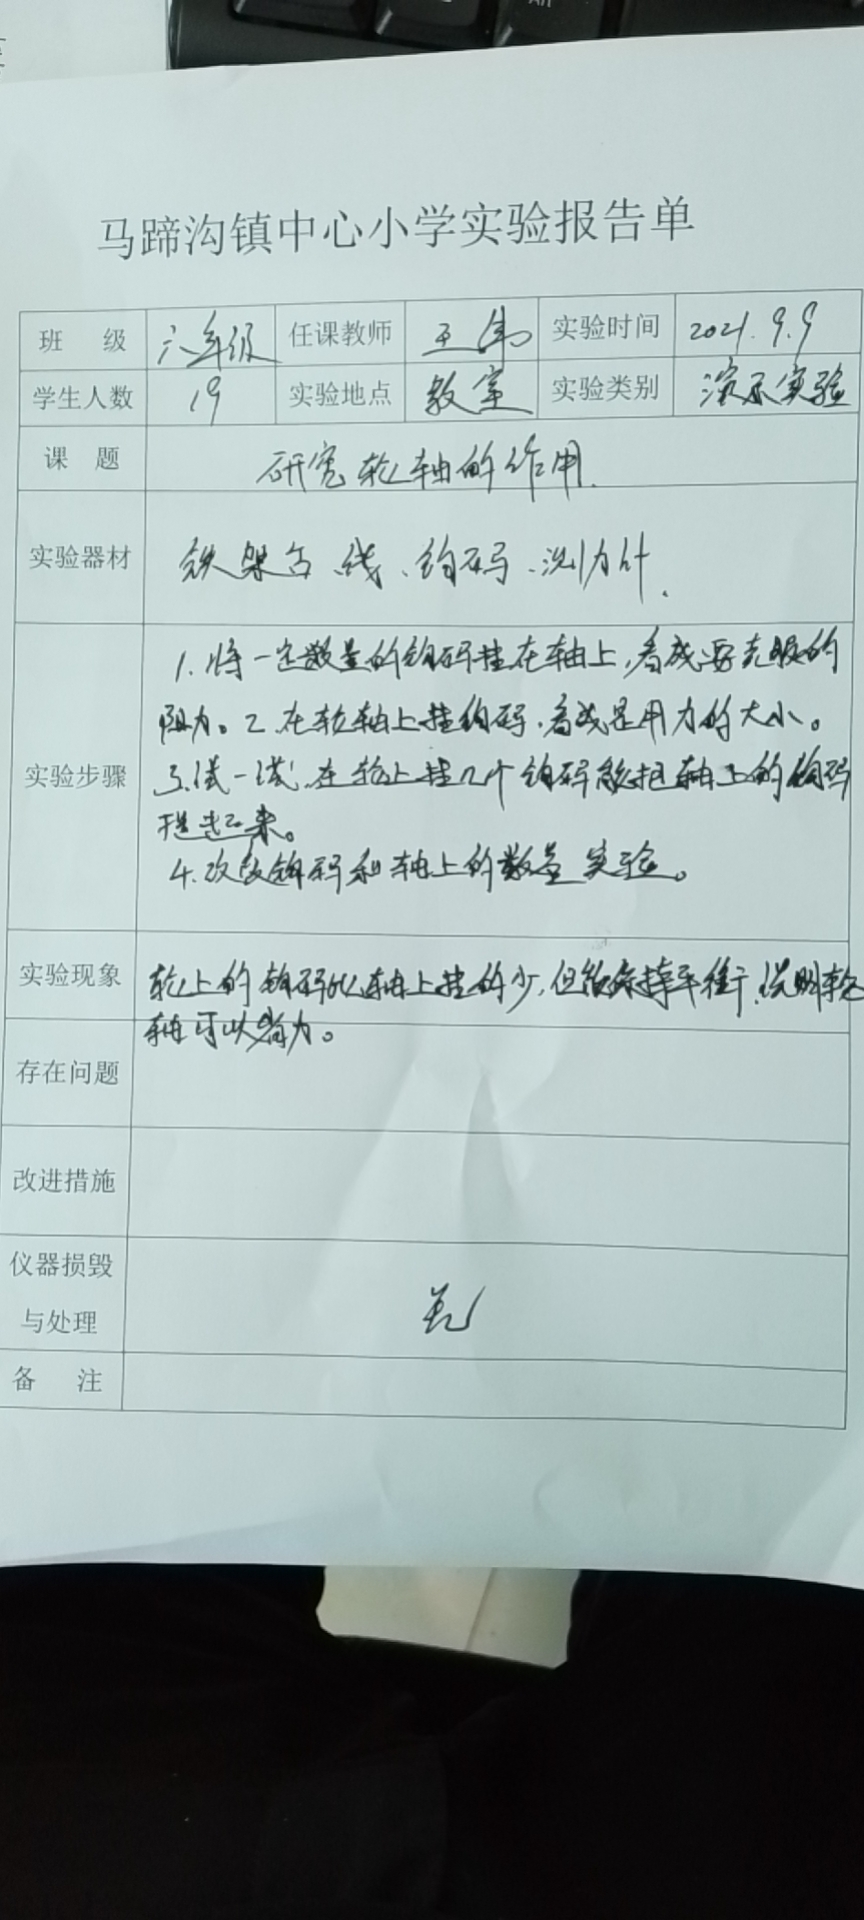 马蹄沟镇中心小学实验报告单
班 级 六年级 任课教师 王伟 实验时间 2021.9.9
学生人数 19 实验地点 教室 实验类别 演示实验
课 题 研究轮轴的作用.
实验器材 铁架台、线、钩码、测力计.
实验步骤
1.将一定数量的钩码挂在轴上,看成要克服的
阻力。2.在轮轴上挂钩码,看成是用力的大小。
3.试一试,在轮上挂几个钩码能把轴上的钩码
提起来。
4.改变钩码和轴上的数量实验。
实验现象
轮上的钩码比轴上挂的少,但能保持平衡,说明轮
轴可以省力。
存在问题
改进措施
仪器损毁
与处理
无
备 注